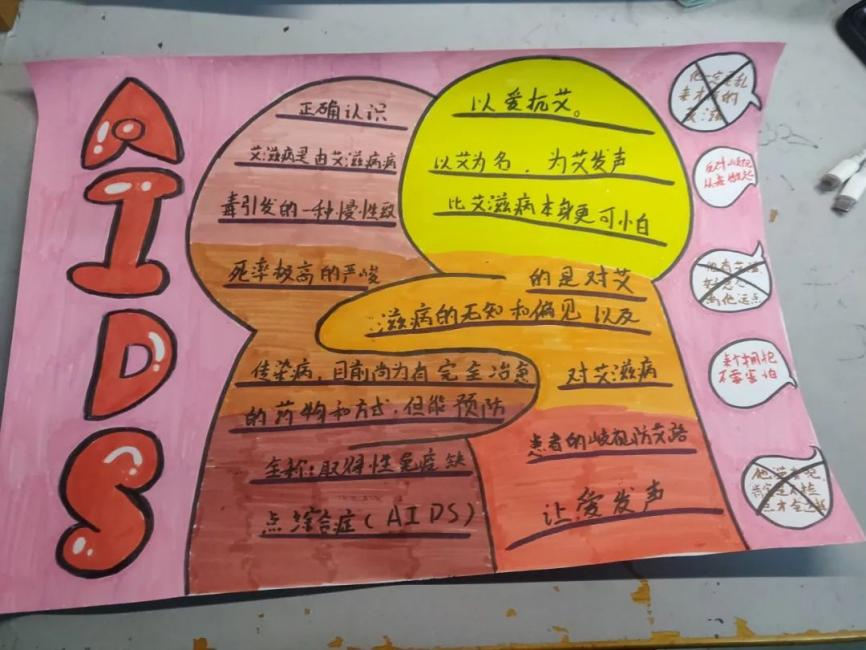 AIDS
正确认识
艾滋病是由艾滋病病
毒引发的一种慢性致
死率极高的严峻
传染病，目前尚为有完全治愈
的药物和方式，但能预防
全称：取得性免疫缺
点综合症（AIDS）
以爱抗艾。
以艾为名，为艾发声
比艾滋病本身更可怕
的是对艾
滋病的无知和偏见以及
对艾滋病
患者的岐视防艾路
让爱发声
来个拥抱
不要害怕